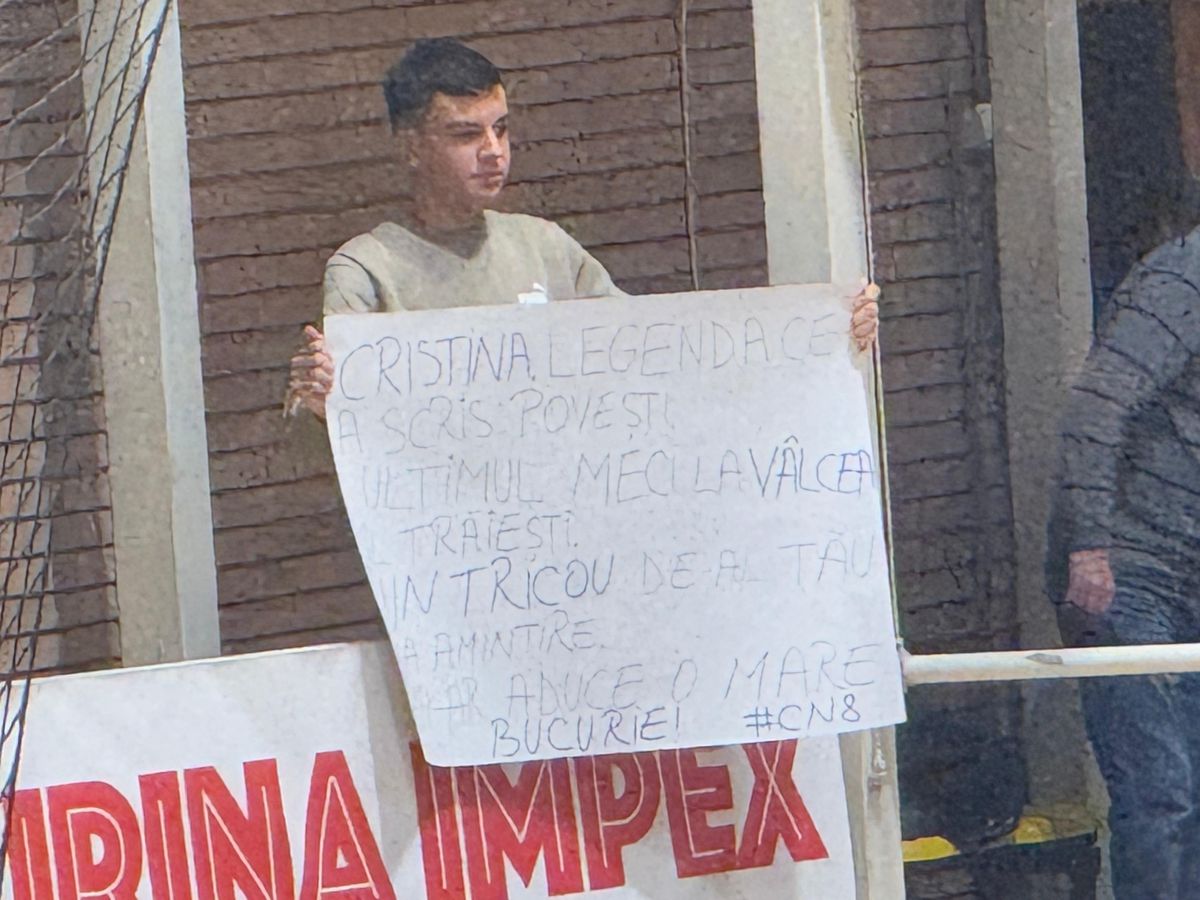 CRISTINA, LEGENDA CE
A SCRIS POVEȘTI
ULTIMUL MECI LA VÂLCEA
TRĂIEȘTI.
UN TRICOU DE-AL TĂU
CA AMINTIRE
AR ADUCE O MARE
BUCURIE! #CN8
IRINA IMPEX